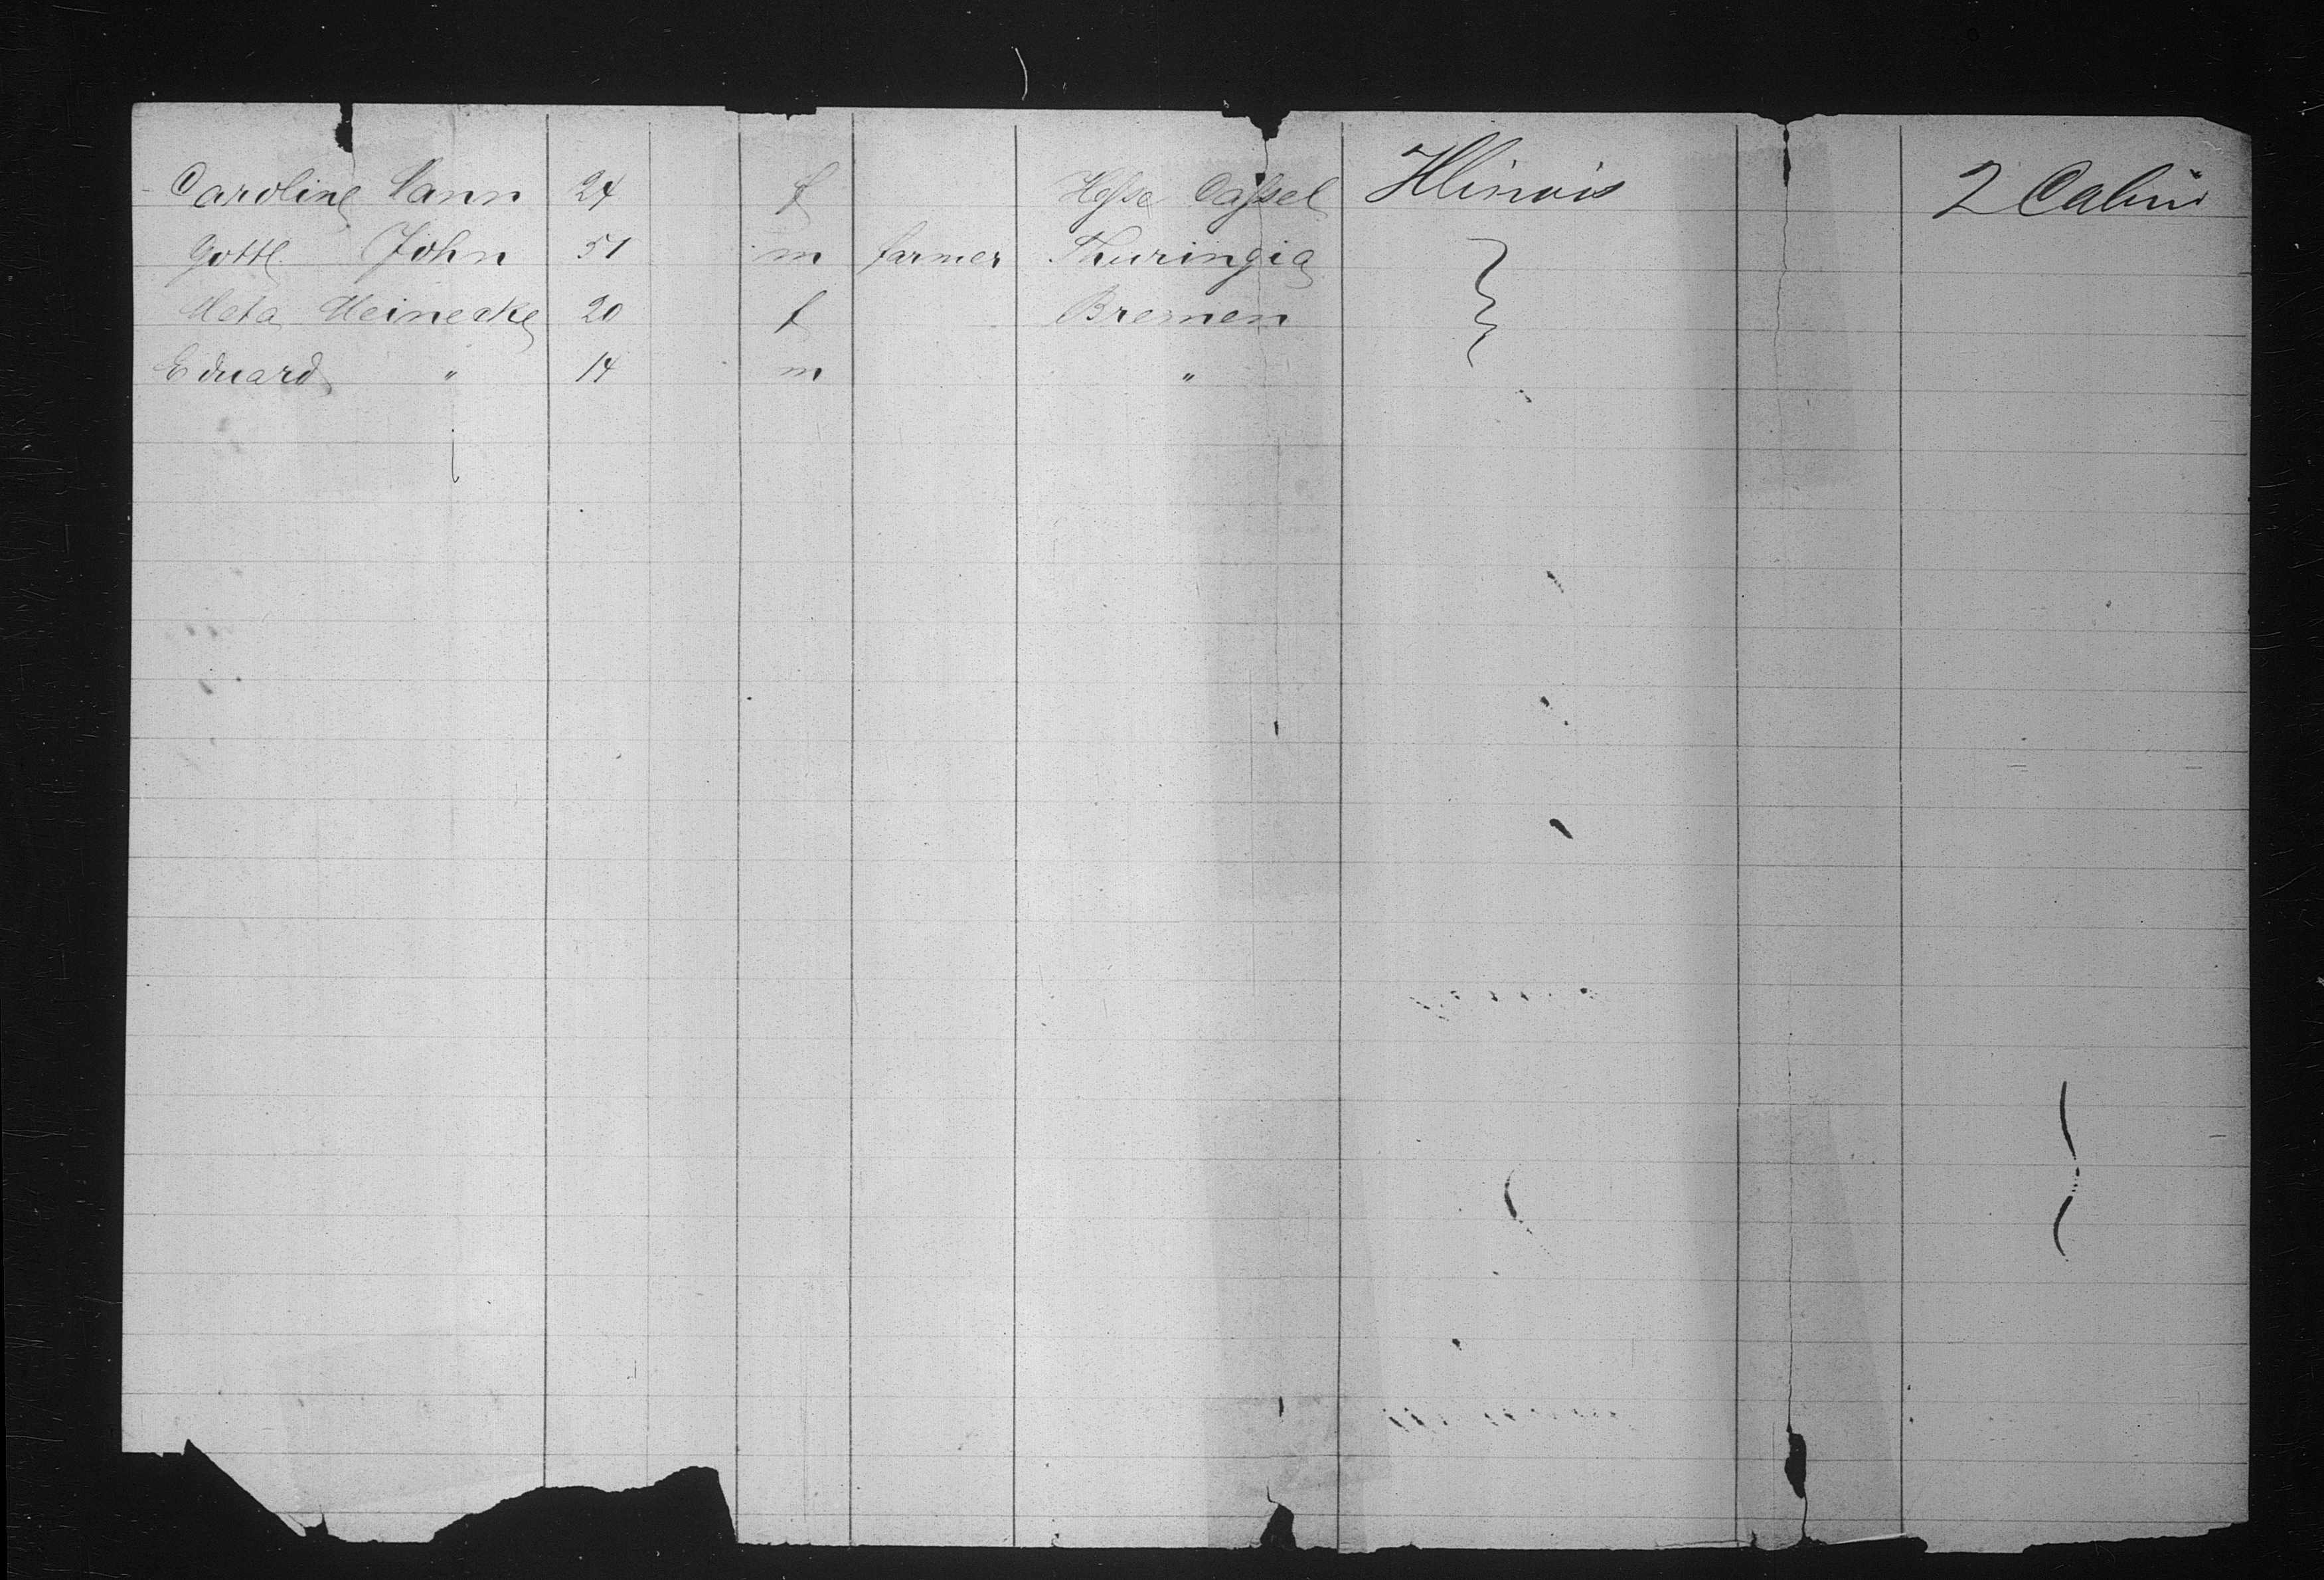 Caroline Sann 24 f Hesse Cassel Illinois 2 Cabin
Gottl. John 51 m farmer Thuringia
Meta Meinecke 20 f Bremen
Eduard " 14 m "